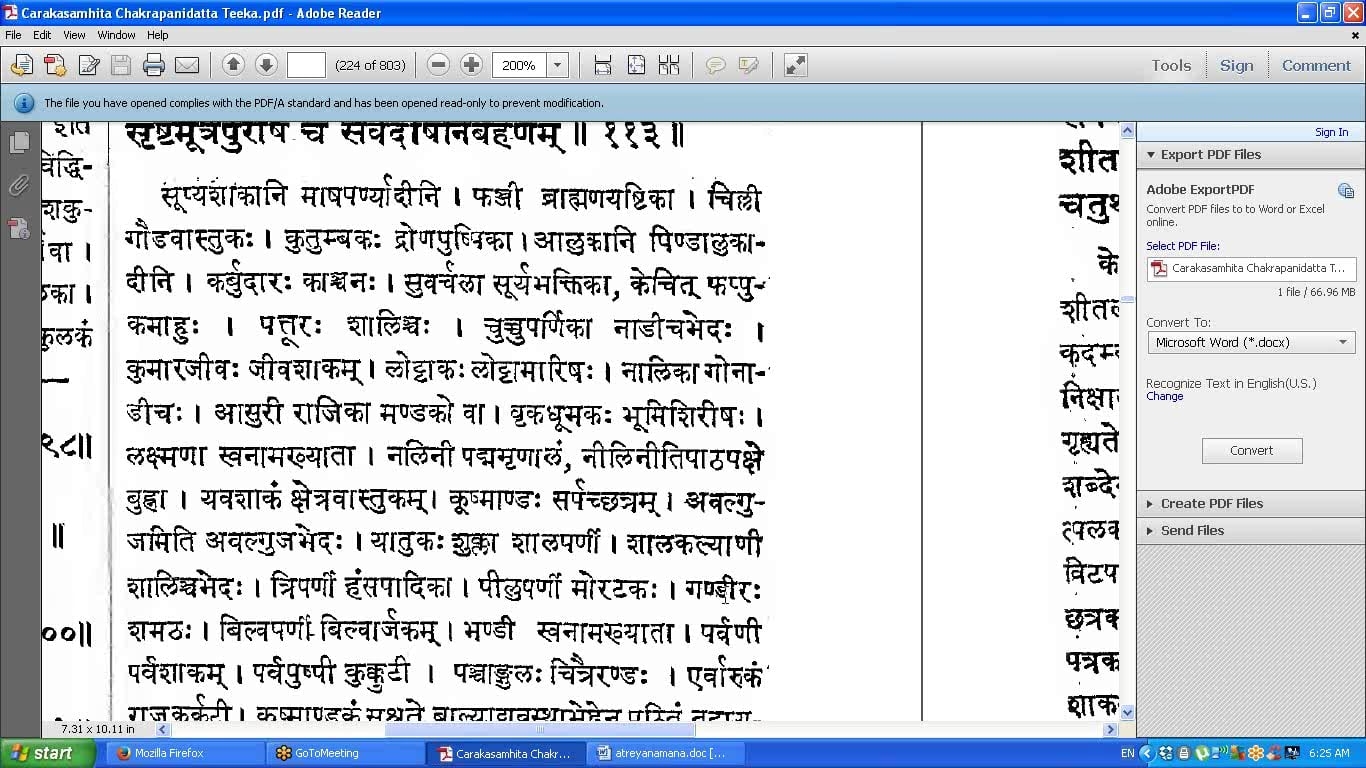 Carakasamhita Chakrapanidatta Teeka.pdf - Adobe Reader
File Edit View Window Help
(224 of 803) 200% Tools Sign Comment
The file you have opened complies with the PDF/A standard and has been opened read-only to prevent modification.
सृष्टमूत्रपुरीषं च सर्वदोषनिबर्हणम् ॥ ११३ ॥
सूप्यशाकानि माषपर्ण्यादीनि । फञ्जी ब्राह्मणयष्टिका । चिल्ली
गौडवास्तुकः । कुतुम्बकः द्रोणपुष्पिका । आलुकानि पिण्डालुका-
दीनि । कर्बुदारः काञ्चनः । सुवर्चला सूर्यभक्तिका, केचित् फप्पु-
कमाहुः । पत्तूरः शालिञ्चः । चुच्चुपर्णिका नाडीचभेदः ।
कुमारजीवः जीवशाकम् । लोट्टाकः लोट्टामारिषः । नालिका गोना-
डीचः । आसुरी राजिका मण्डको वा । वृकधूमकः भूमिशिरीषः ।
लक्ष्मणा स्वनामख्याता । नलिनी पद्ममृणालं, नीलिनीतिपाठपक्षे
बुह्ना । यवशाकं क्षेत्रवास्तुकम् । कूष्माण्डः सर्पच्छत्रम् । अवल्गु-
जमिति अवल्गुजभेदः । यातुकः शुक्ला शालपर्णी । शालकल्याणी
शालिञ्चभेदः । त्रिपर्णी हंसपादिका । पीलुपर्णी मोरटकः । गण्डीरः
शमठः । बिल्वपर्णी बिल्वार्जकम् । भण्डी स्वनामख्याता । पर्वणी
पर्वशाकम् । पर्वपुष्पी कुक्कुटी । पञ्चाङ्गुलः चित्रैरण्डः । एर्वारुकं
राजकर्कटी । कूष्माण्डकं सुश्रुते
वा ।
लका ।
कुलकं
९८॥
॥
००॥
शीत
चतुर्थ
के
शीतल
कदम्ब
गृह्यते
शब्दे
त्पलक
विटप
छत्रक
पत्रक
शाक
7.31 x 10.11 in
Sign In
Export PDF Files
Adobe ExportPDF
Convert PDF files to Word or Excel
online.
Select PDF File:
Carakasamhita Chakrapanidatta T...
1 file / 66.96 MB
Convert To:
Microsoft Word (*.docx)
Recognize Text in English(U.S.)
Change
Convert
Create PDF Files
Send Files
start Mozilla Firefox GoToMeeting Carakasamhita Chakr... atreyanamana.doc [... EN 6:25 AM